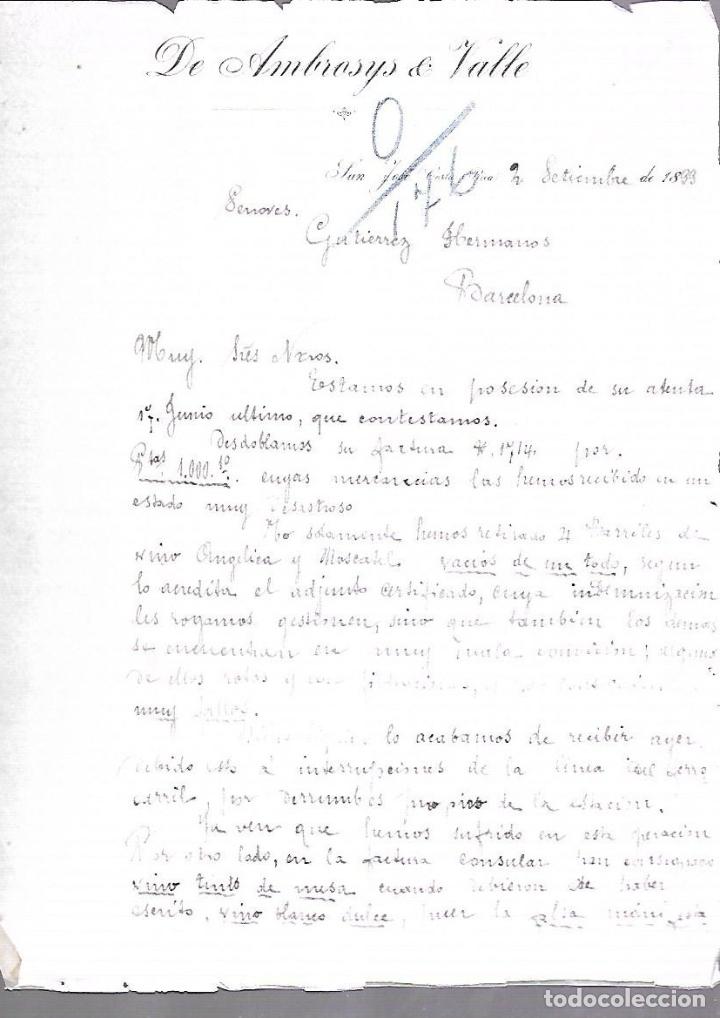 De Ambrosys & Valle
0/176
San José 2 Setiembre de 1899
Senores.
Gutierrez Hermanos
Barcelona
Muy. Srēs Nros.
Estamos en posesion de su atenta
17. Junio ultimo, que contestamos.
Desdoblamos su factura #. 1714. por.
Ptas 1.000.10. cuyas mercancias las hemos recibido en un
estado muy desastroso
No solamente hemos retirado 4 Barriles de
vino Angelica y Moscatel. vacios de un todo, segun
lo acredita el adjunto certificado, cuya indemnizacion
les rogamos gestionen, sino que tambien los demas
se encuentran en muy mala condicion; algunos
de ellos rotos y con
muy faltos.
lo acabamos de recibir ayer
debido esto a interrupciones de la linea del ferro
carril, por derrumbes propios de la estacion.
Ya ven que hemos sufrido en esta operacion
Por otro lado, en la factura consular han consignado
vino tinto de mesa cuando debieron de haber
escrito, vino blanco dulce, pues la
todocoleccion.net